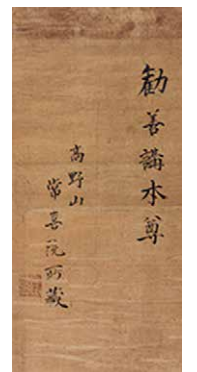 勧善講本尊
高野山
常喜院所蔵